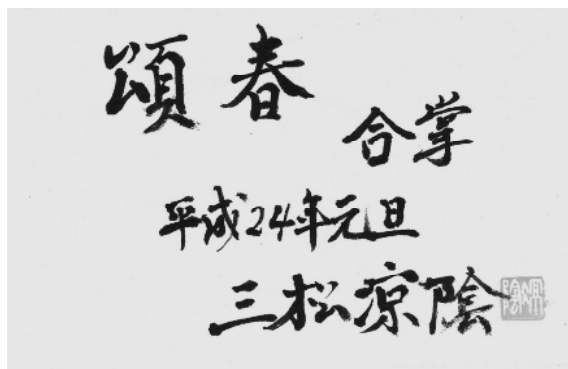 頌春
合掌
平成24年元旦
三松涼陰